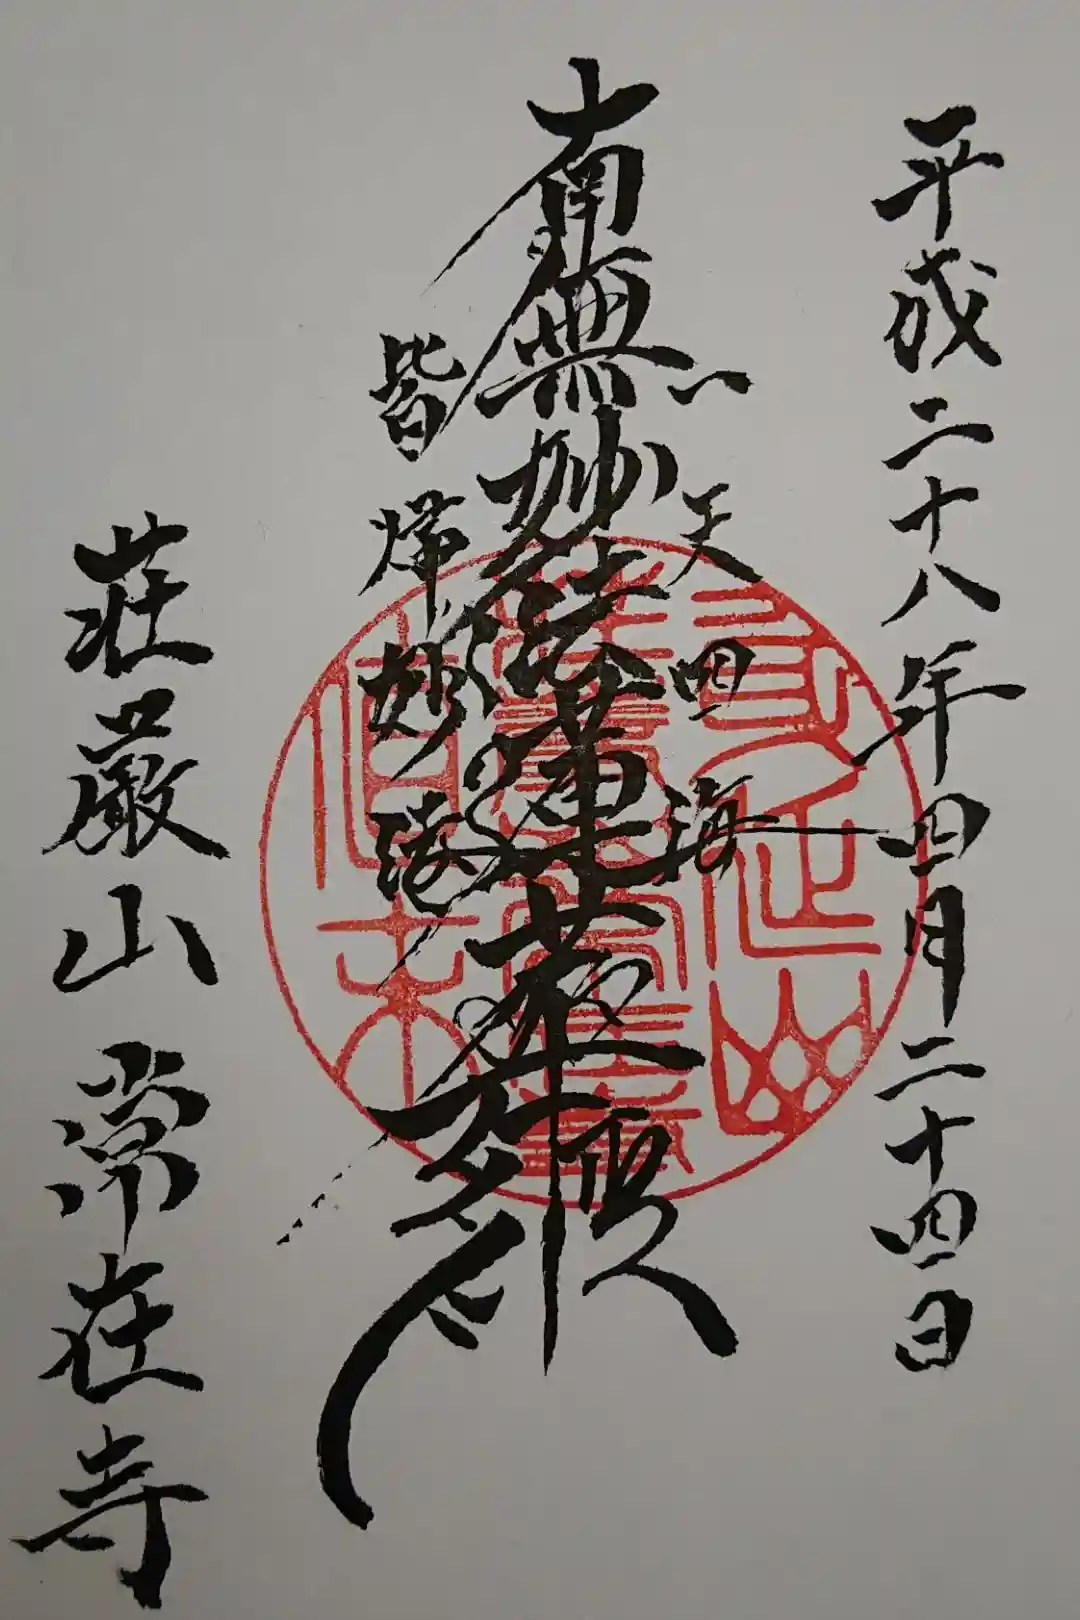 平成二十八年四月二十四日
一天四海
南無妙法蓮華経
皆帰妙法
荘厳山 常在寺